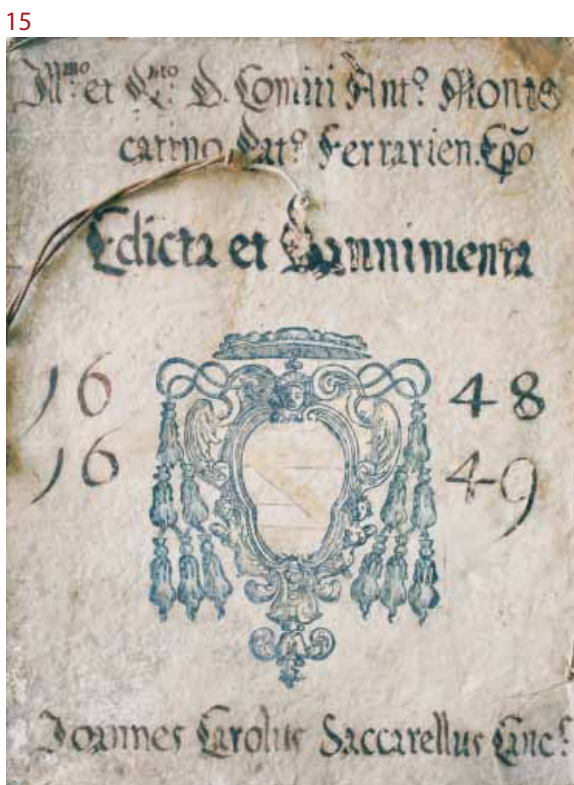 15
Ill.mo et R.mo D. Comiti Ant.o Monte
catino, Pat.o Ferrarien. Ep̄o
Edicta et Bannimenta
16 48
16 49
Joannes Carolus Saccarellus Canc.s